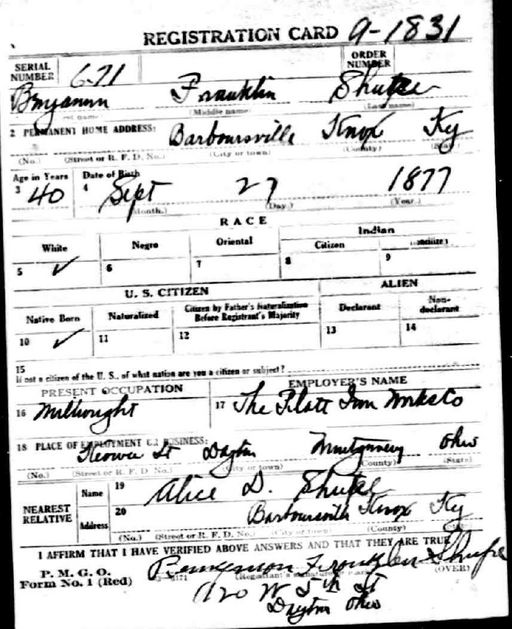 REGISTRATION CARD 9-1831
SERIAL NUMBER 671 ORDER NUMBER
Benjamin Franklin
(Middle name) (Last name)
2 PERMANENT HOME ADDRESS: Barboursville Knox Ky
(No.) (Street or R. F. D. No.) (City or town) (County)
Age in Years Date of Birth
3 40 4 Sept 27 1877
(Month.) (Day.) (Year.)
RACE
White Negro Oriental Indian
Citizen
5 ✓ 6 7 8 9
U. S. CITIZEN ALIEN
Native Born Naturalized Citizen by Father's Naturalization Before Registrant's Majority Declarant Non-declarant
10 ✓ 11 12 13 14
15
If not a citizen of the U. S., of what nation are you a citizen or subject?
PRESENT OCCUPATION EMPLOYER'S NAME
16 Millwright 17 The Platt Iron Works Co
18 PLACE OF EMPLOYMENT OR BUSINESS:
Keowee St Dayton Montgomery Ohio
(No.) (Street or R. F. D. No.) (City or town) (County) (State)
NEAREST RELATIVE
Name 19 Alice D.
Address 20 Barboursville Knox Ky
(No.) (Street or R. F. D. No.) (City or town) (County)
I AFFIRM THAT I HAVE VERIFIED ABOVE ANSWERS AND THAT THEY ARE TRUE
P. M. G. O.
Form No. 1 (Red) Benjamon Franklin
(Registrant's signature) (OVER)
120 W 5th St
Dayton Ohio